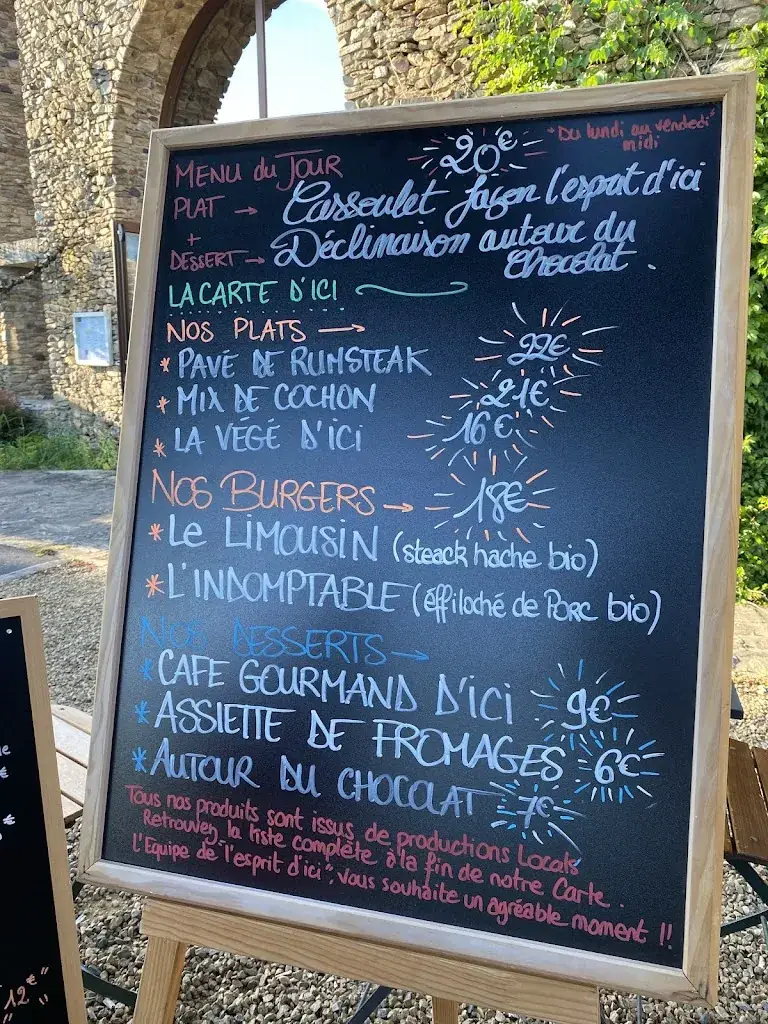 "Du lundi au vendedi"
midi
MENU du JOUR 20€
PLAT → Cassoulet façon l'esprit d'ici
+
DESSERT → Déclinaison autour du
chocolat.
LA CARTE D'ICI
NOS PLATS →
* PAVÉ DE RUMSTEAK 22€
* MIX DE COCHON 21€
* LA VÉGÉ D'ICI 16€
NOS BURGERS → 18€
* LE LIMOUSIN (steack hache bio)
* L'INDOMPTABLE (éffiloché de PORC bio)
NOS DESSERTS →
* CAFE GOURMAND D'ICI 9€
* ASSIETTE DE FROMAGES 6€
* AUTOUR DU CHOCOLAT 7€
Tous nos produits sont issus de productions Locals
Retrouvez la liste complète à la fin de notre Carte.
L'Equipe de "l'esprit d'ici", vous souhaite un agréable moment !!
12€